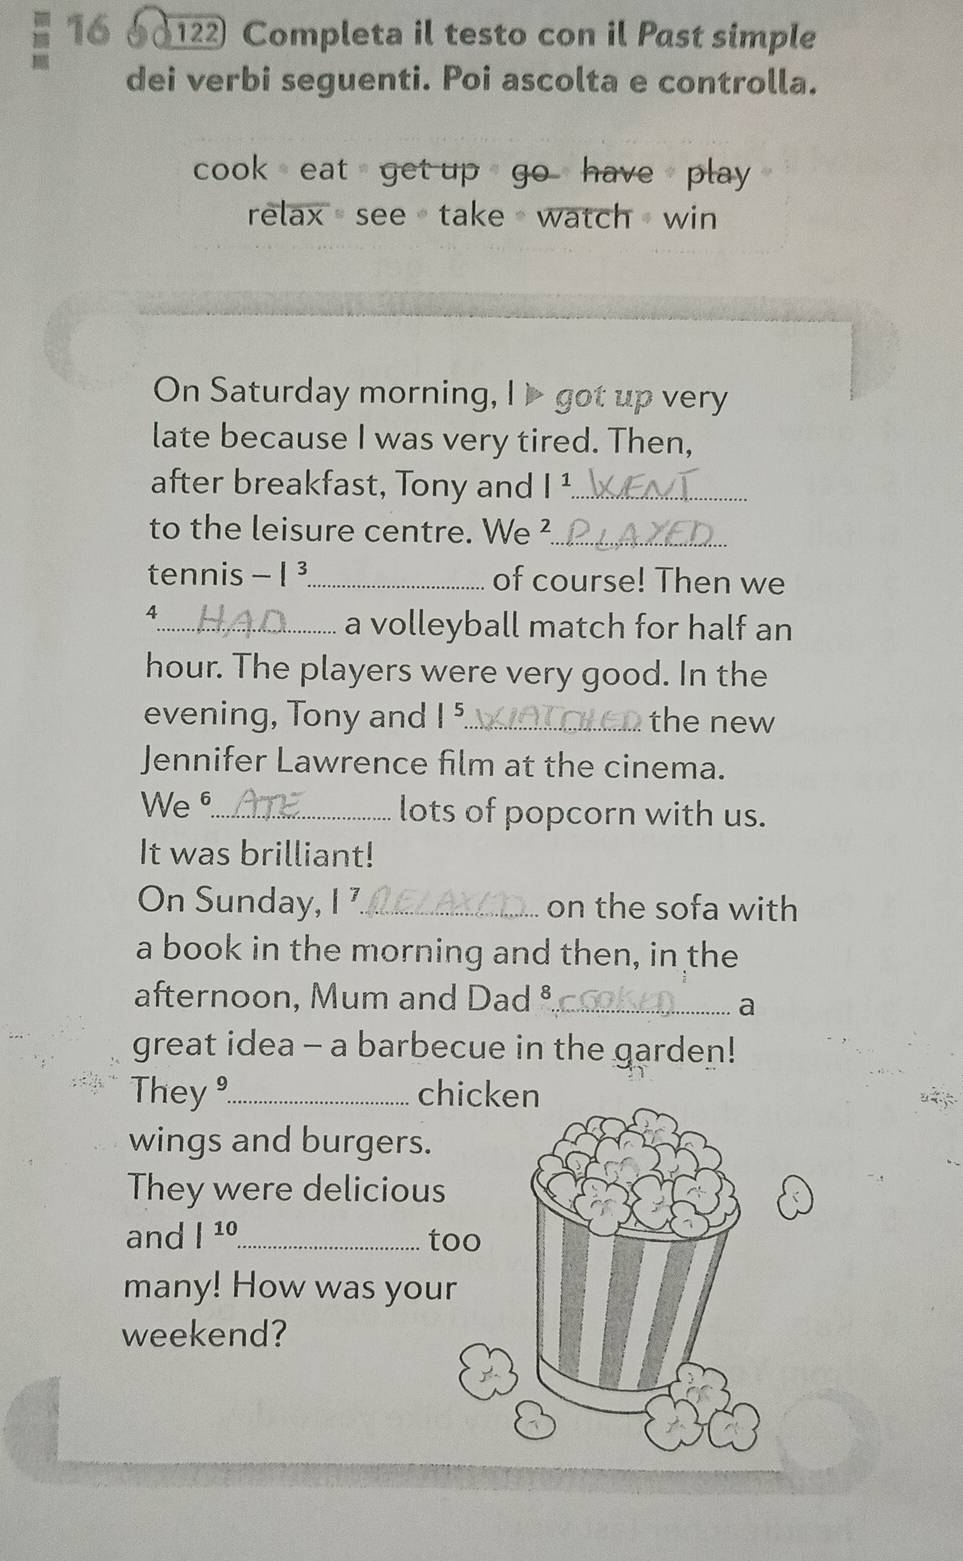 16 122 Completa il testo con il Past simple
dei verbi seguenti. Poi ascolta e controlla.
cook eat get up go have play
relax see take watch win
On Saturday morning, I ▶ got up very
late because I was very tired. Then,
after breakfast, Tony and I ¹ WENT
to the leisure centre. We ² PLAYED
tennis – I ³ of course! Then we
⁴ HAD a volleyball match for half an
hour. The players were very good. In the
evening, Tony and I ⁵ WATCHED the new
Jennifer Lawrence film at the cinema.
We ⁶ ATE lots of popcorn with us.
It was brilliant!
On Sunday, I ⁷ RELAXED on the sofa with
a book in the morning and then, in the
afternoon, Mum and Dad ⁸ COOKED a
great idea – a barbecue in the garden!
They ⁹ chicken
wings and burgers.
They were delicious
and I ¹⁰ too
many! How was your
weekend?